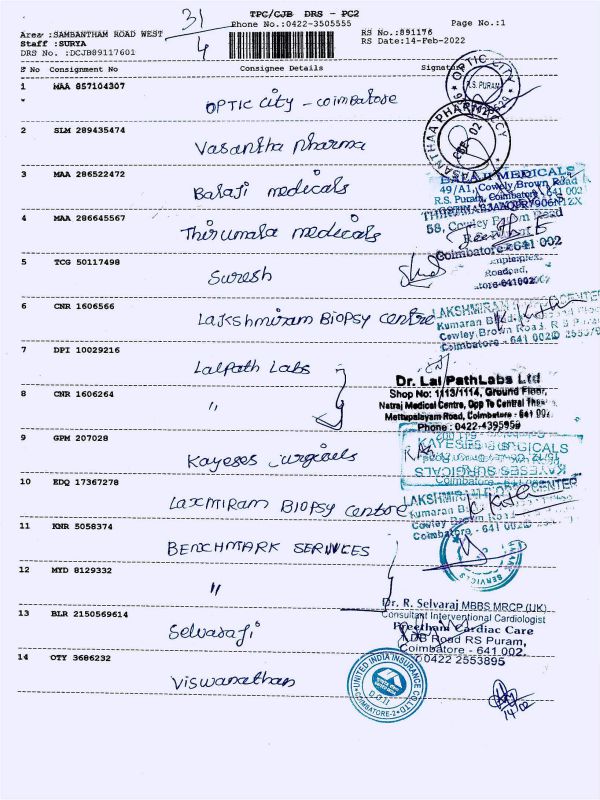 31
4
TPC/CJB DRS - PC2
Phone No.:0422-3505555
Page No.:1
Area :SAMBANTHAM ROAD WEST
Staff :SURYA
DRS No. :DCJB89117601
RS No.:891176
RS Date:14-Feb-2022
S No Consignment No Consignee Details Signature
1 MAA 857104307
OPTIC CITY - COIMBATORE
OPTIC CITY
R.S. PURAM
2 SLM 289435474
Vasantha pharma
VASANTHAA PHARMACY
02
3 MAA 286522472
Balaji medicals
BALAJI MEDICALS
49/A1, Cowely Brown Road
R.S. Puram, Coimbatore - 641 002
4 MAA 286645567
Thirumala medicals
58, Cowley Brown Road
Coimbatore - 641 002
5 TCG 50117498
Suresh
6 CNR 1606566
Lakshmiram Biopsy centre
LAKSHMIRAM
Kumaran
Cowley Brown Road, R S Puram
Coimbatore - 641 002
7 DPI 10029216
Lalpath Labs
Dr. Lal PathLabs Ltd
Shop No: 1113/1114, Ground Floor,
Natraj Medical Centre, Opp To Central
Mettupalayam Road, Coimbatore - 641 002.
Phone : 0422-4395959
8 CNR 1606264
"
9 GPM 207028
Kayeses surgicals
KAYESES SURGICALS
KAYESES SURGICALS
Coimbatore
10 EDQ 17367278
Laxmiram Biopsy centre
LAKSHMIRAM CENTER
Kumaran
Cowley Brown Road
Coimbatore - 641 002
11 KNR 5058374
BENCHMARK SERVICES
SERVICES
12 MYD 8129332
"
13 BLR 2150569614
Selvaraji
Dr. R. Selvaraj MBBS MRCP (UK)
Consultant Interventional Cardiologist
Preetham Cardiac Care
Road RS Puram,
Coimbatore - 641 002.
0422 2553895
14 OTY 3686232
Viswanathan
UNITED INDIA INSURANCE CO LTD
D.O.II
COIMBATORE-2
14/02